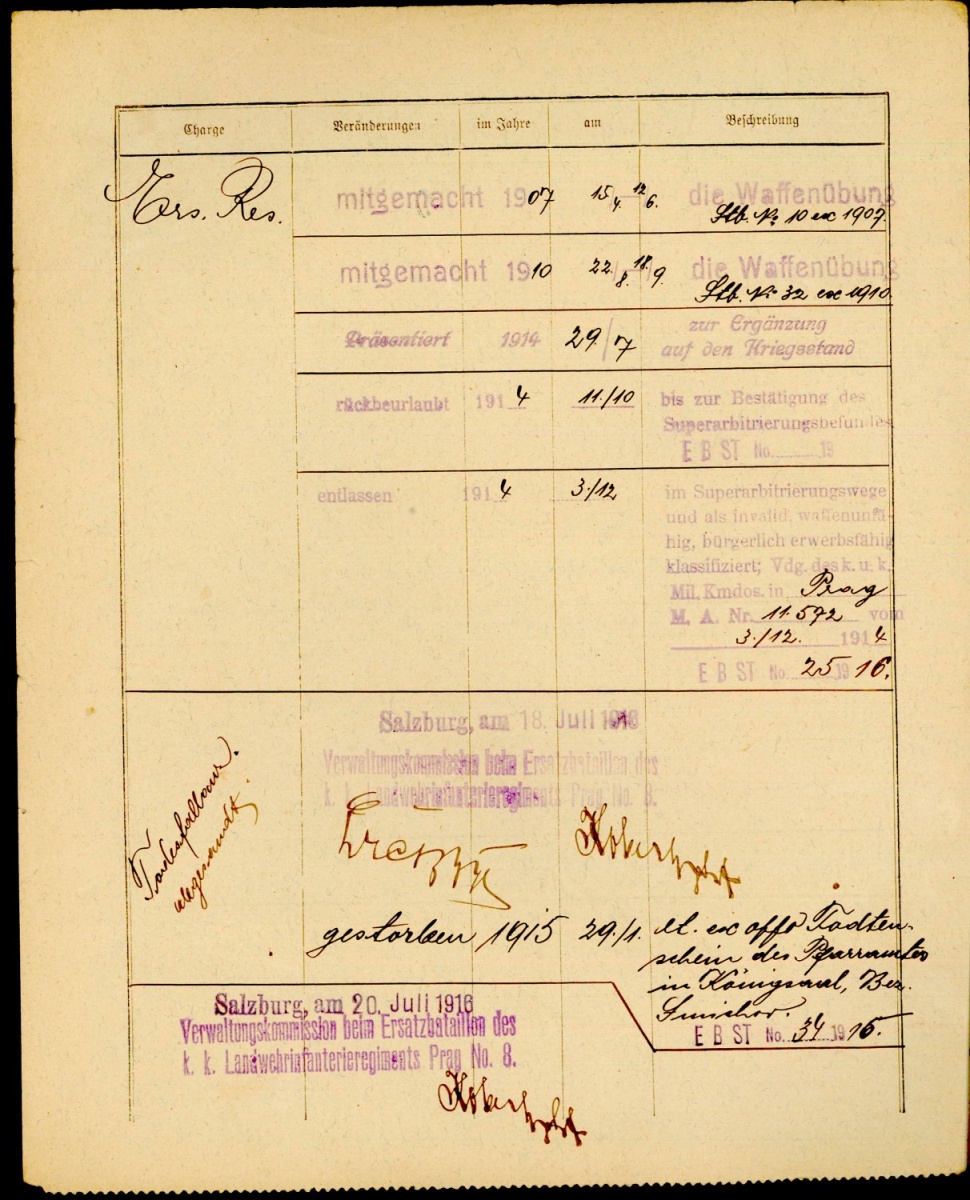 Charge Veränderungen im Jahre am Beschreibung
Ers. Res. mitgemacht 1907 15/4 12/6. die Waffenübung
Stb. No 10 ex 1907.
mitgemacht 1910 22/8. 18/9. die Waffenübung
Stb. No 32 ex 1910.
Präsentiert 1914 29/7 zur Ergänzung
auf den Kriegsstand
rückbeurlaubt 1914 11./10 bis zur Bestätigung des
Superarbitrierungsbefundes
E B ST No. 19
entlassen 1914 3./12 im Superarbitrierungswege
und als invalid, waffenunfä-
hig, bürgerlich erwerbsfähig
klassifiziert; Vdg. des k. u. k.
Mil. Kmdos. in Prag
M. A. Nr. 11.592 vom
3./12. 1914
E B ST No. 25 1916.
Salzburg, am 18. Juli 1916
Verwaltungskommission beim Ersatzbataillon des
k. k. Landwehrinfanterieregiments Prag No. 8.
abgesandt
gestorben 1915 29./1. lt. ex offo Todten-
schein des Pfarramtes
in Königsaal, Bez.
Smichov.
E B ST No. 34 1916.
Salzburg, am 20. Juli 1916
Verwaltungskommission beim Ersatzbataillon des
k. k. Landwehrinfanterieregiments Prag No. 8.